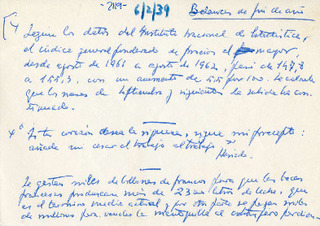 -2119- 6/2/39 Balances de fin de año
Según los datos del Instituto Nacional de Estadística,
el índice general ponderado de precios al por mayor,
desde agosto de 1961 a agosto de 1962, pasó de 147,3
a 155,3, con un aumento de 5,5 por 100. Se calcula
que los meses de septiembre y siguientes la subida ha con-
tinuado.
4º Si tu corazón desea la riqueza, sigue mi precepto:
añade sin cesar el trabajo al trabajo.
Hesiodo.
Se gastan miles de billones de francos para que las vacas
francesas produzcan más de 23 litros de leche, que
es el término medio actual y por otra parte se pagan miles
de millones para la mantequilla